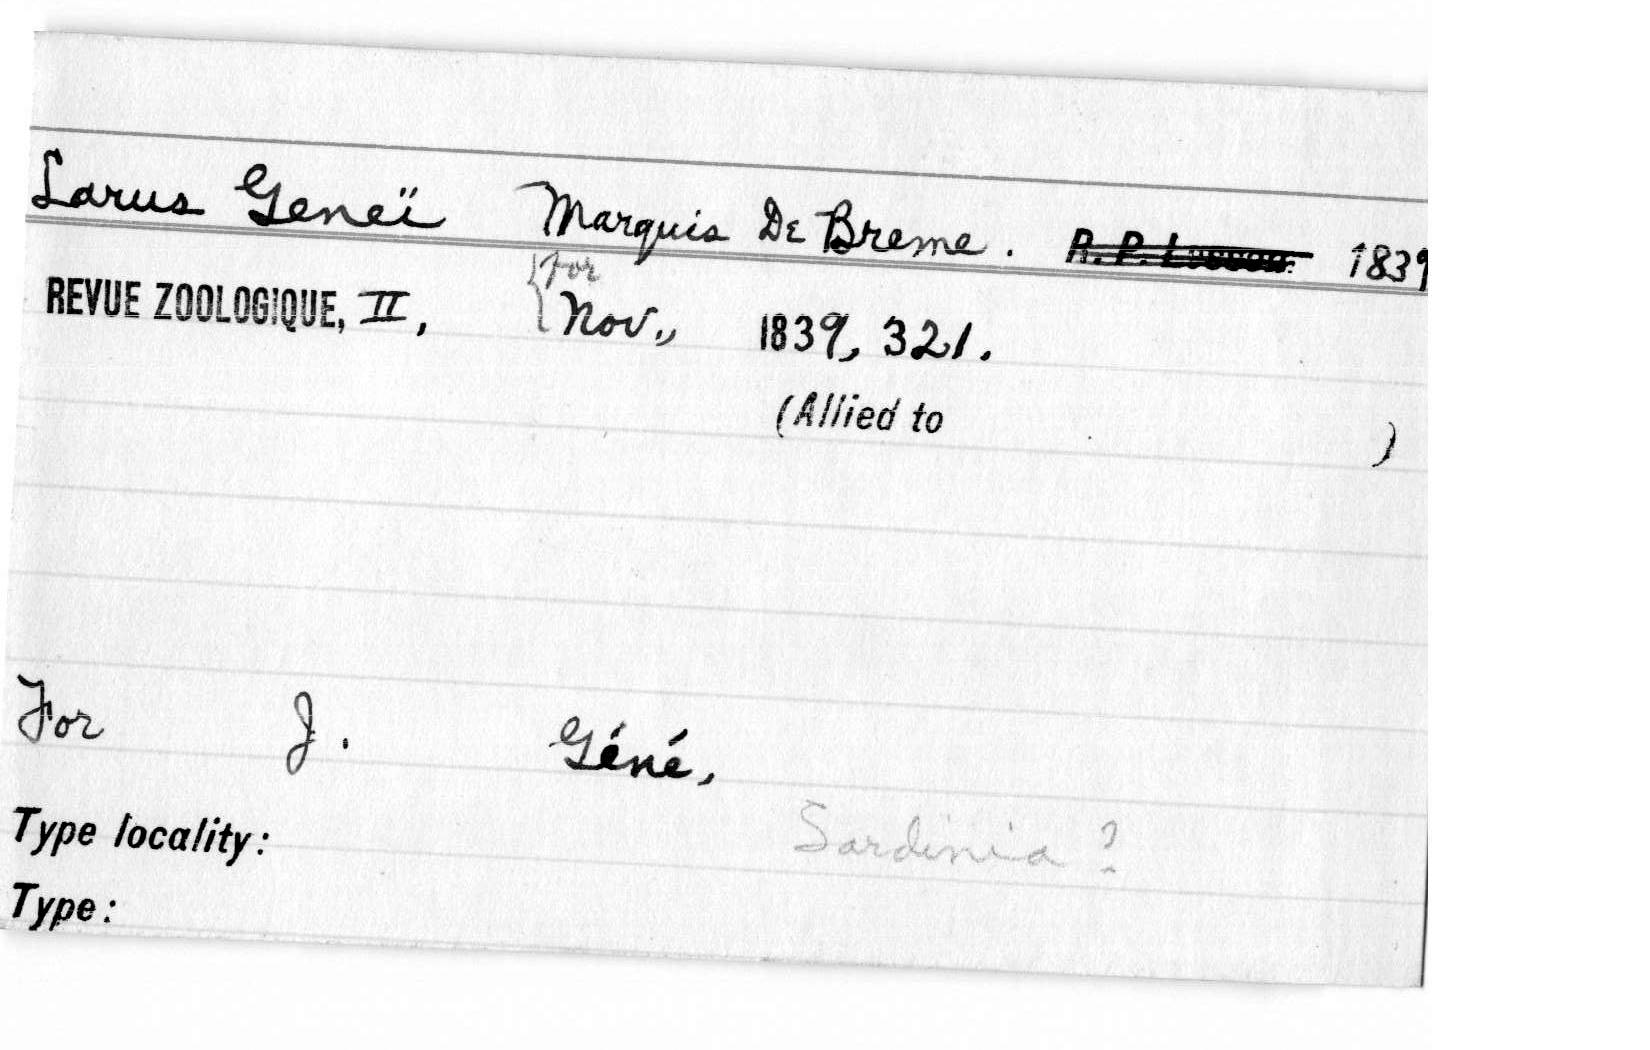 Larus Geneï Marquis De Breme. R. P. Lesson. 1839
REVUE ZOOLOGIQUE, II, {for Nov., 1839, 321.
(Allied to )
For J. Géné,
Type locality: Sardinia?
Type: